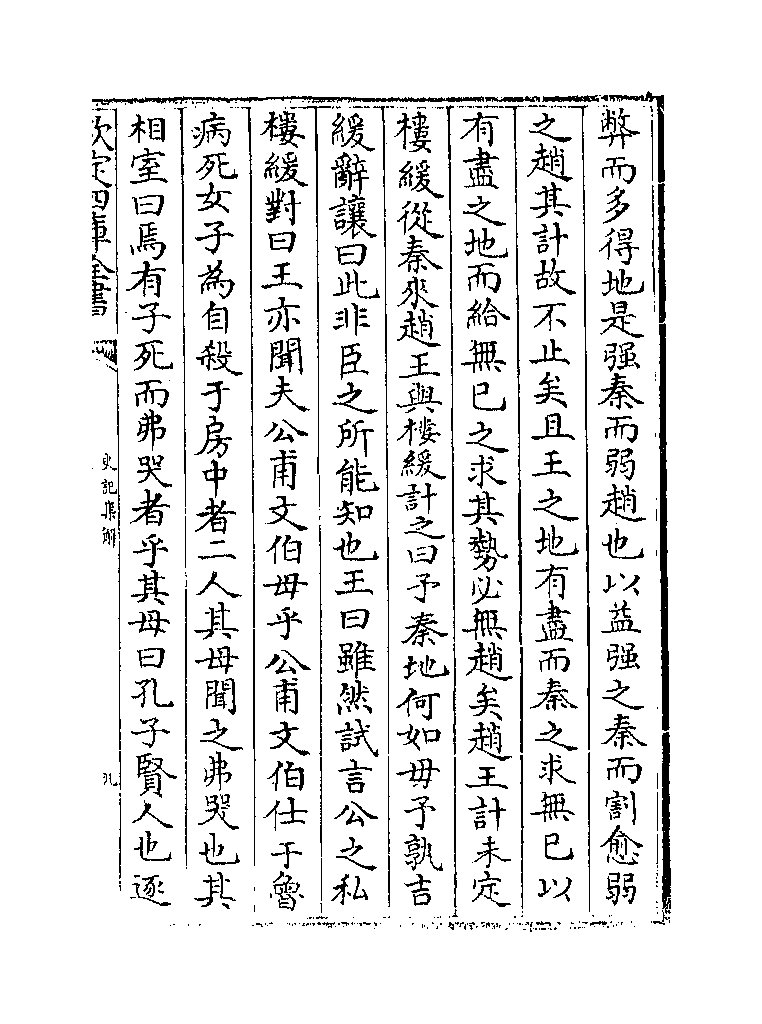 弊而多得地是强秦而弱趙也以益强之秦而割愈弱
之趙其計故不止矣且王之地有盡而秦之求無已以
有盡之地而給無已之求其勢必無趙矣趙王計未定
樓緩從秦來趙王與樓緩計之曰予秦地何如毋予孰吉
緩辭讓曰此非臣之所能知也王曰雖然試言公之私
樓緩對曰王亦聞夫公甫文伯母乎公甫文伯仕于魯
病死女子為自殺于房中者二人其母聞之弗哭也其
相室曰焉有子死而弗哭者乎其母曰孔子賢人也逐
欽定四庫全書
史記集解
九